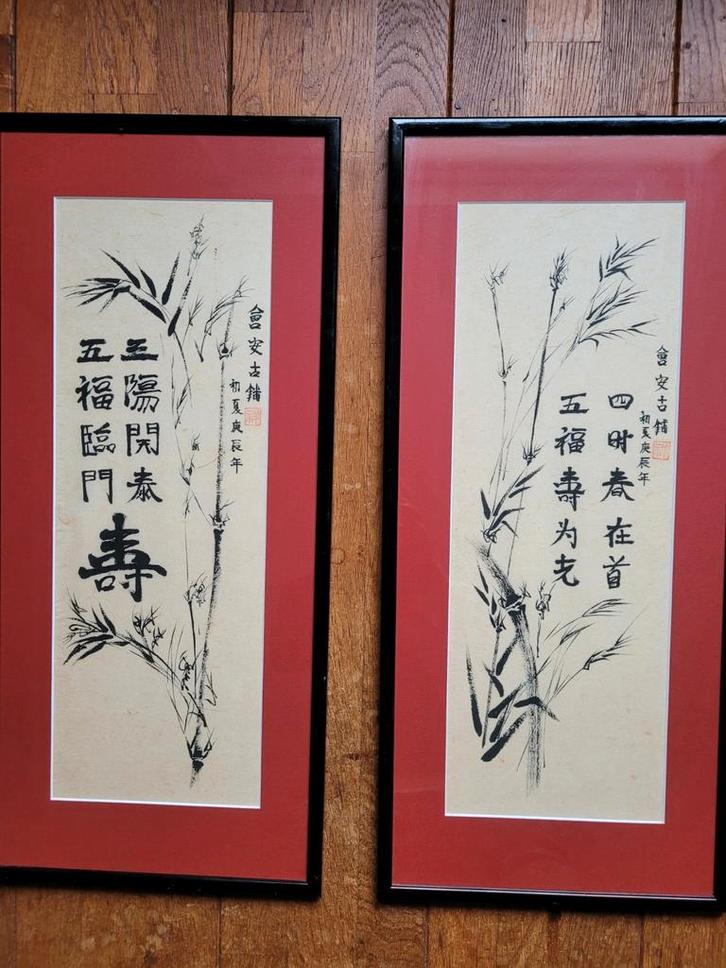 會安古鎮
初夏庚辰年
三陽開泰
五福臨門
壽
會安古鎮
初夏庚辰年
四时春在首
五福壽为先